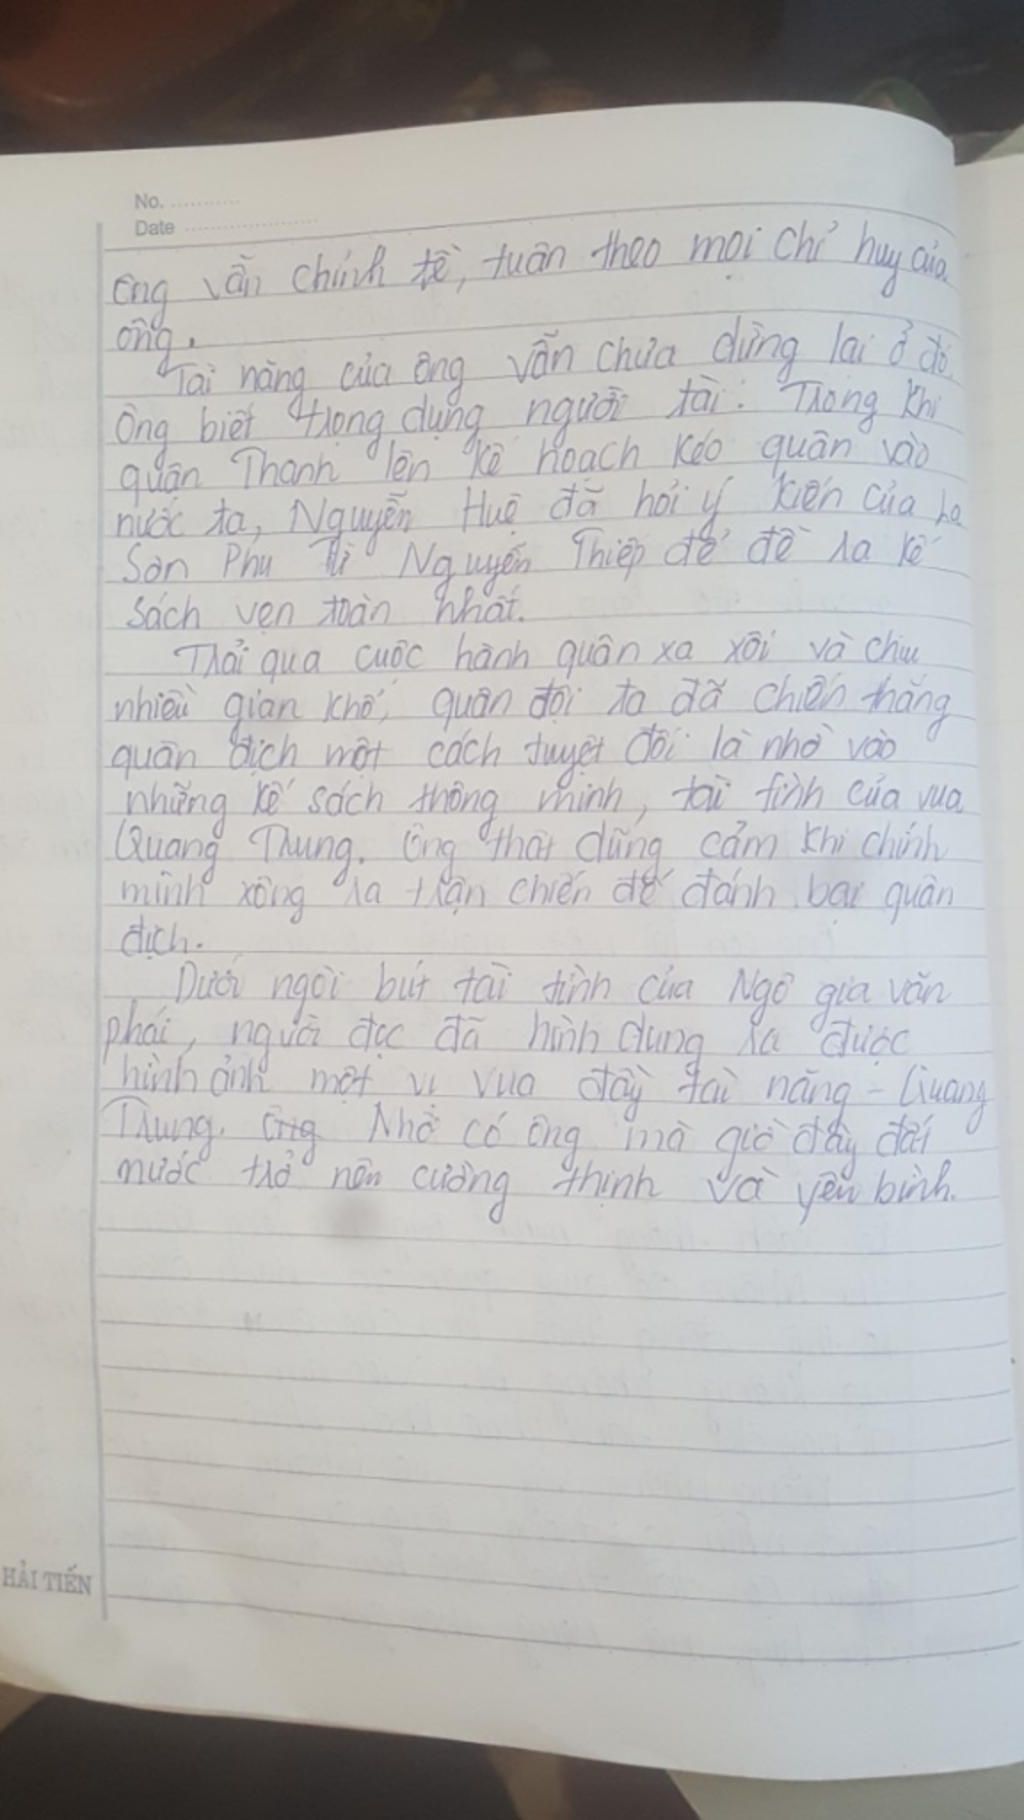 No.
Date
ông vẫn chỉnh tề, tuân theo mọi chỉ huy của
ông.
Tài năng của ông vẫn chưa dừng lại ở đó.
Ông biết trọng dụng người tài. Trong khi
quân Thanh lên kế hoạch kéo quân vào
nước ta, Nguyễn Huệ đã hỏi ý kiến của La
Sơn Phu Tử Nguyễn Thiếp để đề ra kế
sách vẹn toàn nhất.
Trải qua cuộc hành quân xa xôi và chịu
nhiều gian khổ, quân đội ta đã chiến thắng
quân địch một cách tuyệt đối là nhờ vào
những kế sách thông minh, tài tình của vua
Quang Trung. Ông thật dũng cảm khi chính
mình xông ra trận chiến để đánh bại quân
địch.
Dưới ngòi bút tài tình của Ngô gia văn
phái, người đọc đã hình dung ra được
hình ảnh một vị vua đầy tài năng - Quang
Trung. Ông Nhờ có ông mà giờ đây đất
nước trở nên cường thịnh và yên bình.
HẢI TIẾN